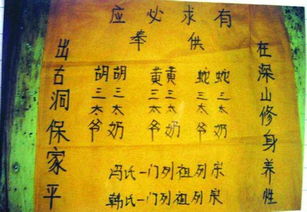 有求必应
供奉
在深山修身养性
蛇三太奶
蛇三太爷
黄三太奶
黄三太爷
胡三太奶
胡三太爷
出古洞保家平
冯氏一门列祖列宗
韩氏一门列祖列宗